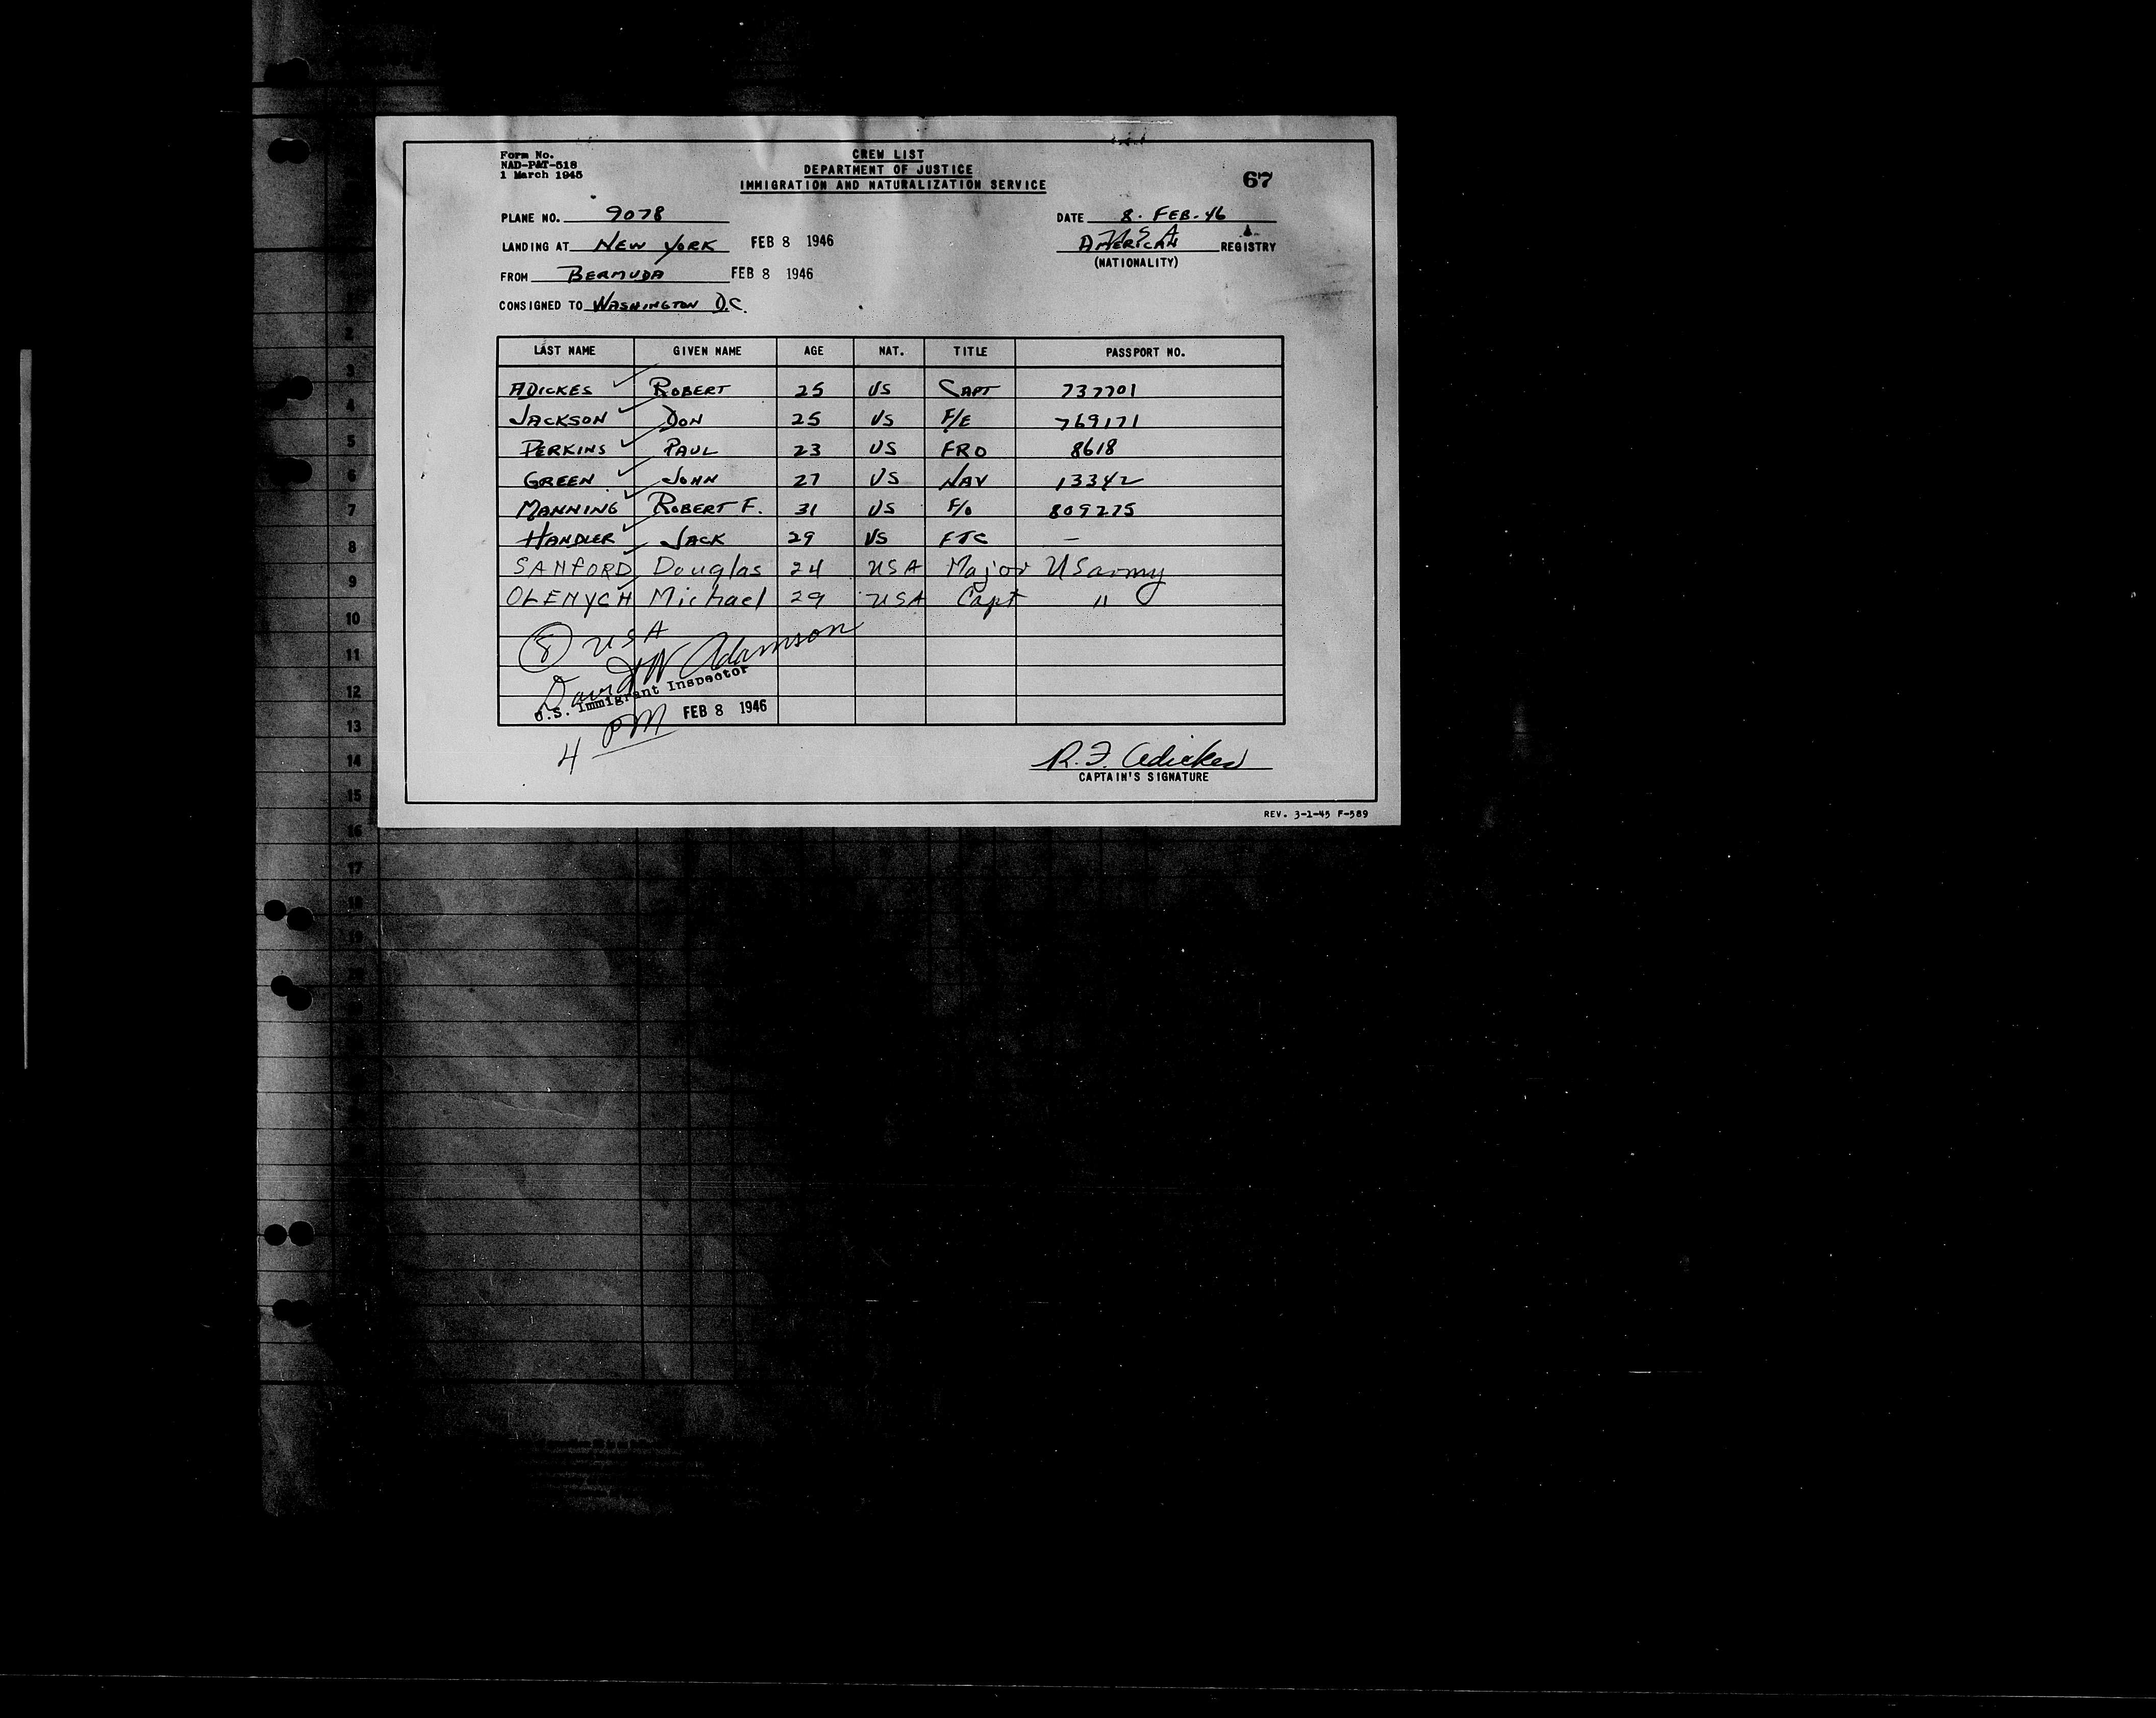 Form No.
NAD-P&T-518
1 March 1945
CREW LIST
DEPARTMENT OF JUSTICE
IMMIGRATION AND NATURALIZATION SERVICE
67
PLANE NO. 9078
DATE 8. FEB. 46
LANDING AT NEW YORK FEB 8 1946
USA
AMERICAN REGISTRY
(NATIONALITY)
FROM BERMUDA FEB 8 1946
CONSIGNED TO WASHINGTON D.C.
LAST NAME GIVEN NAME AGE NAT. TITLE PASSPORT NO.
ADICKES ROBERT 25 US CAPT 737701
JACKSON DON 25 US F/E 769171
PERKINS PAUL 23 US FRO 8618
GREEN JOHN 27 US NAV 13342
MANNING ROBERT F. 31 US F/O 809275
HANDLER JACK 29 US FTC —
SANFORD Douglas 24 USA Major US army
OLENYCH Michael 29 USA Capt "
8 USA
David W Adamson
U.S. Immigrant Inspector
FEB 8 1946
4 PM
R. F. Adickes
CAPTAIN'S SIGNATURE
REV. 3-1-45 F-589
2
3
4
5
6
7
8
9
10
11
12
13
14
15
16
17
18
19